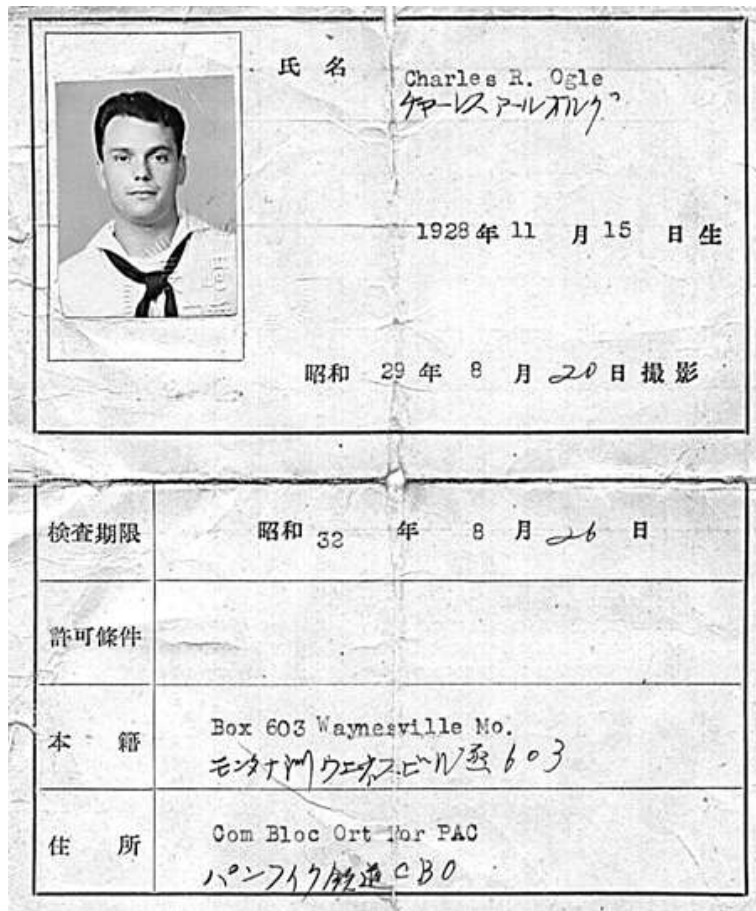 氏 名 Charles R. Ogle
チャーレス アール オルグ
1928 年 11 月 15 日 生
昭和 29 年 8 月 20 日 撮 影
検査期限 昭和 32 年 8 月 26 日
許可條件
本 籍 Box 603 Waynesville Mo.
モンタナ洲 ウエネスビル 603
住 所 Com Bloc Ort for PAC
CBO